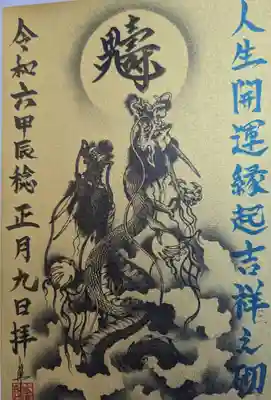 人生開運縁起吉祥之砌
令和六甲辰稔 正月九日拝